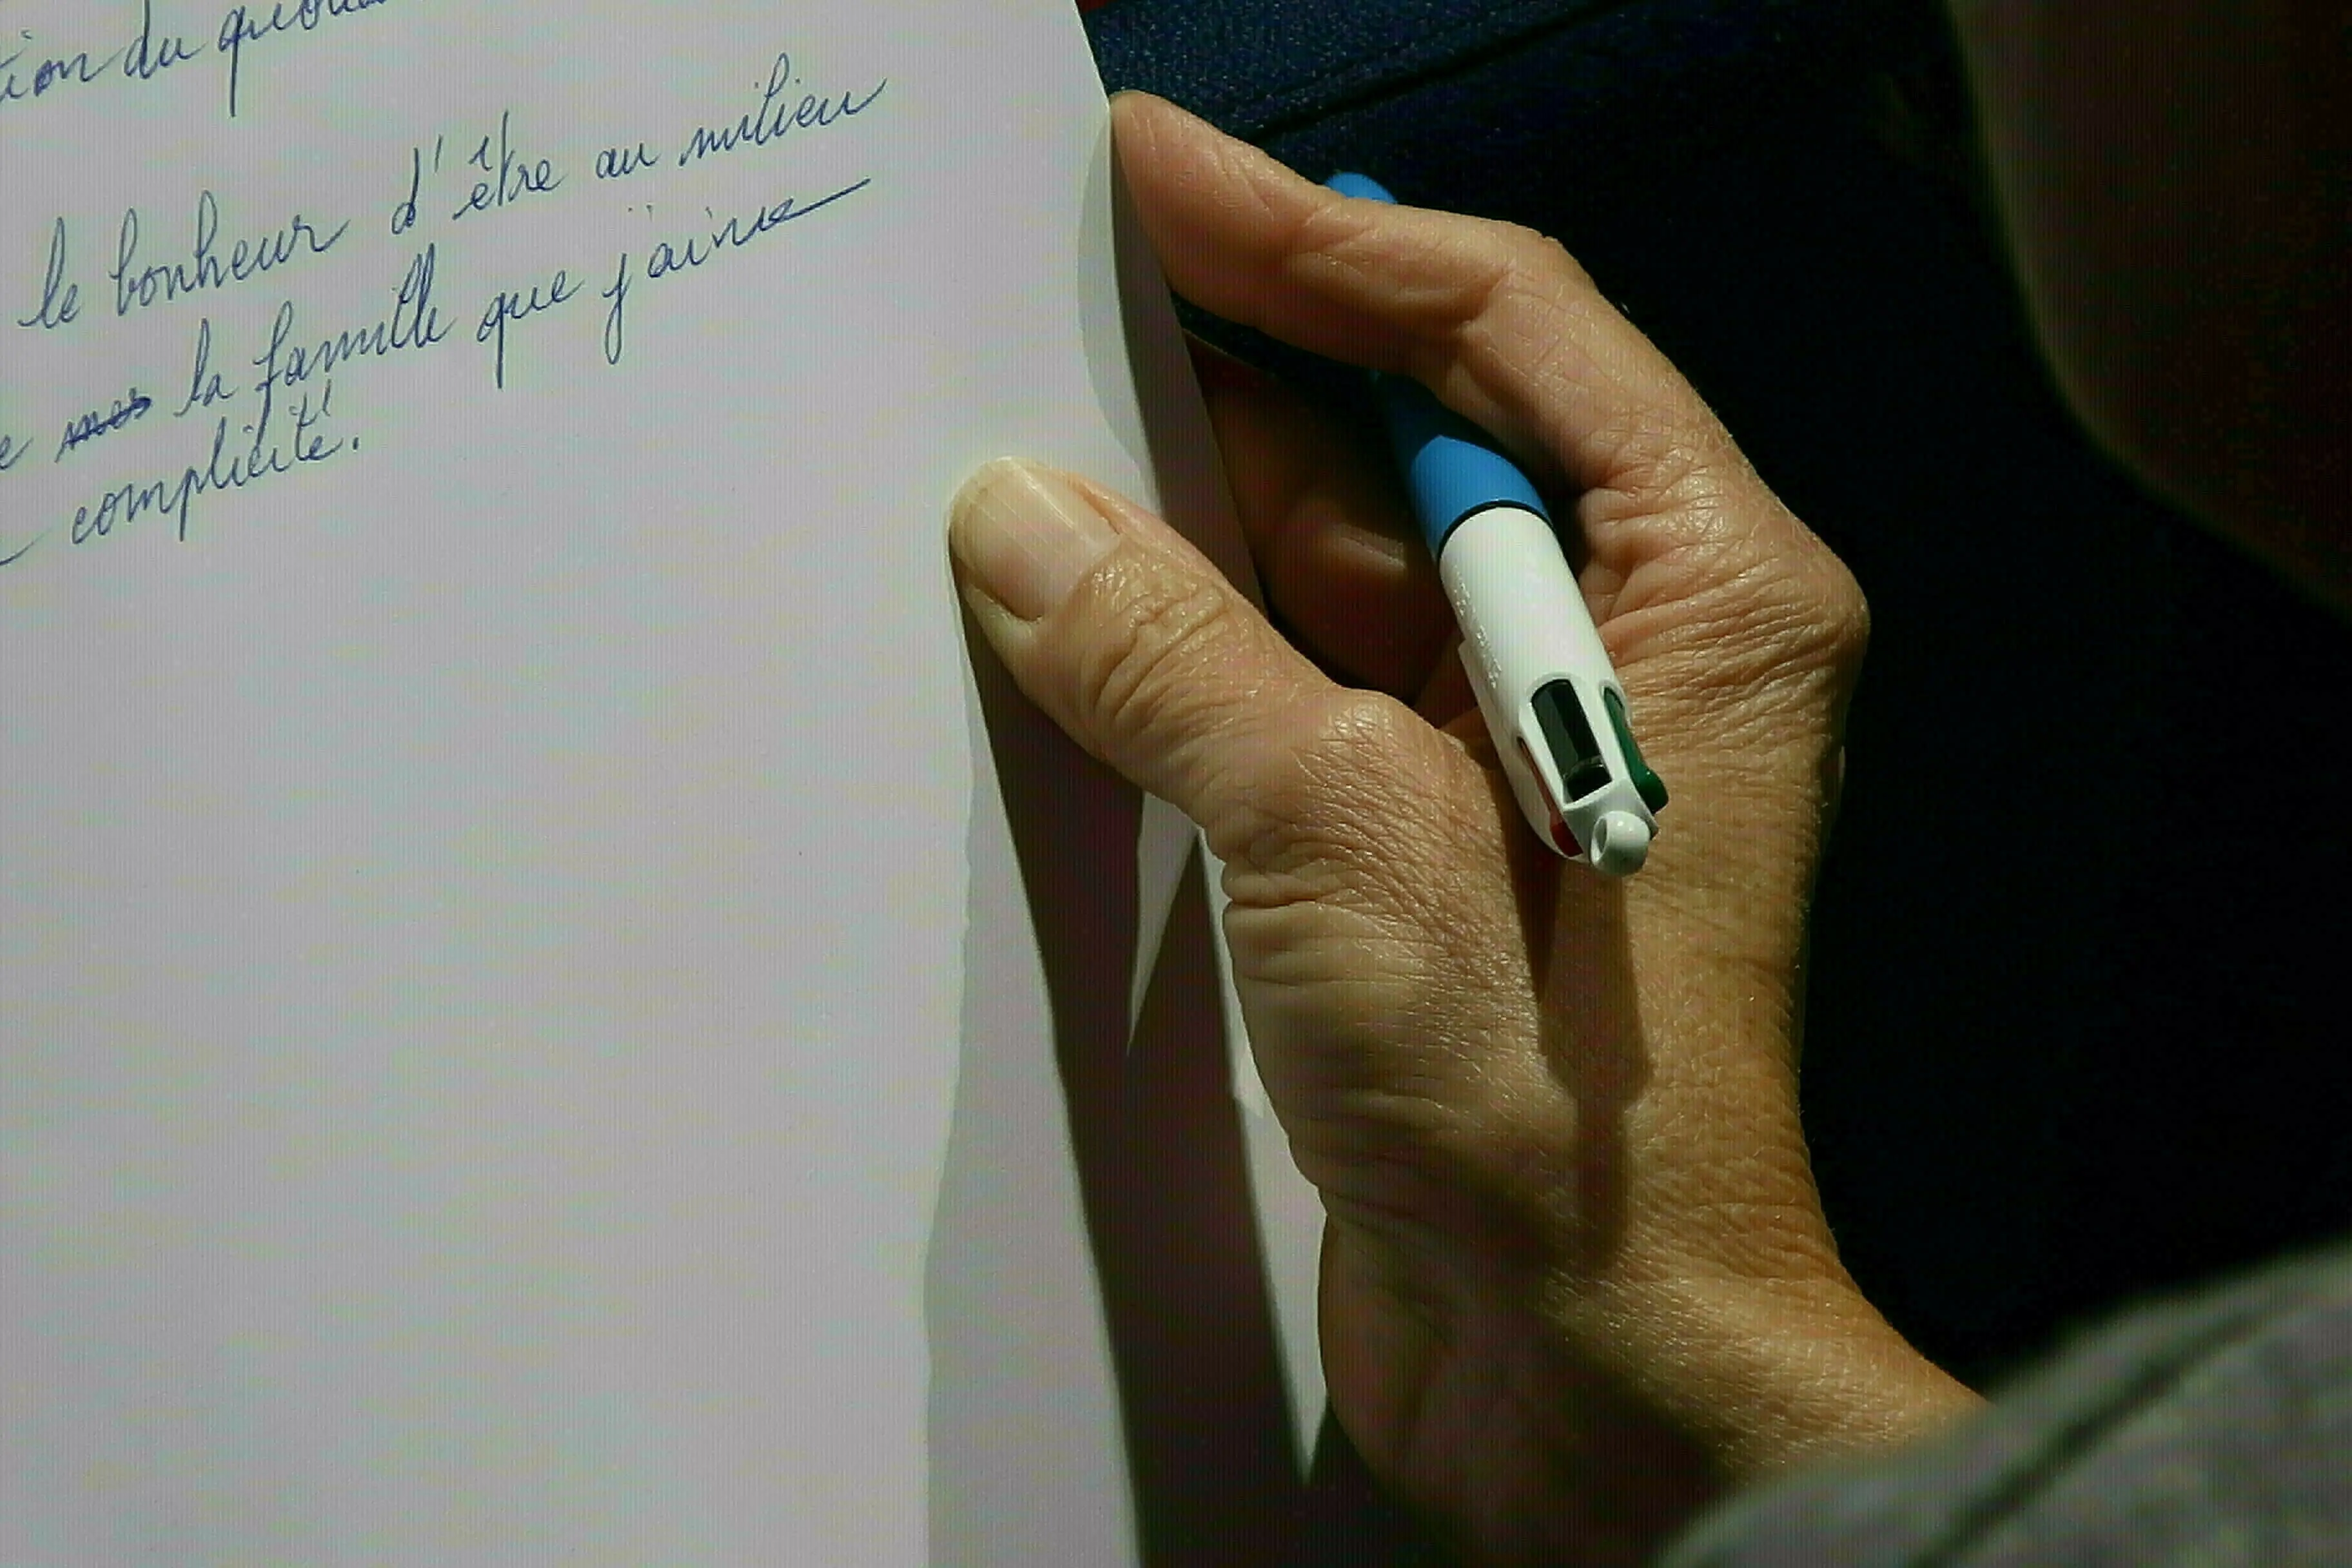 tion du
le bonheur d'être au milieu
mes la famille que j'aime
complicité.